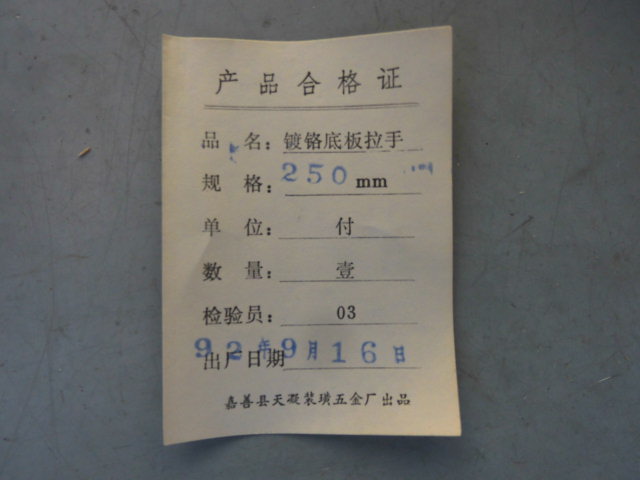 产品合格证
品 名：镀铬底板拉手
规 格：250mm
单 位：付
数 量：壹
检验员：03
出厂日期
92年9月16日
嘉善县天凝装璜五金厂出品